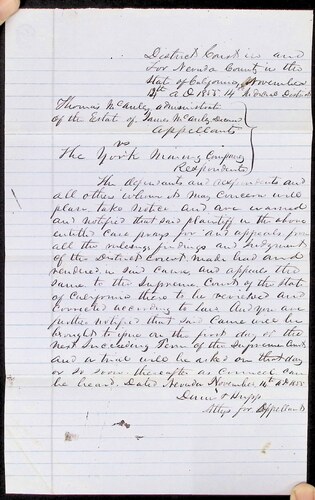 District Court in and
For Nevada County in the
State of California, November
A D 14 Judicial District
Thomas McCauley administrator
of the Estate of James McCauley Deceased
Appellants
vs
The York Mining Company
Respondents
The defendants and respondents and
all others whom it may concern will
please take notice and are warned
and notified that said plaintiff in the above
entitled case prays for and appeals from
all the rulings findings and Judgment
of the District court made had and
rendered in said cause and appeals the
same to the Supreme Court of the State
of California there to be reviewed and
corrected according to law and you are
further notified that said cause will be
brought to issue on the first day of the
next succeeding Term of the Supreme Court
and a trial will be asked on that day
or so soon thereafter as Counsel can
be heard. Dated Nevada November
& Hupp
Attys for Appellants